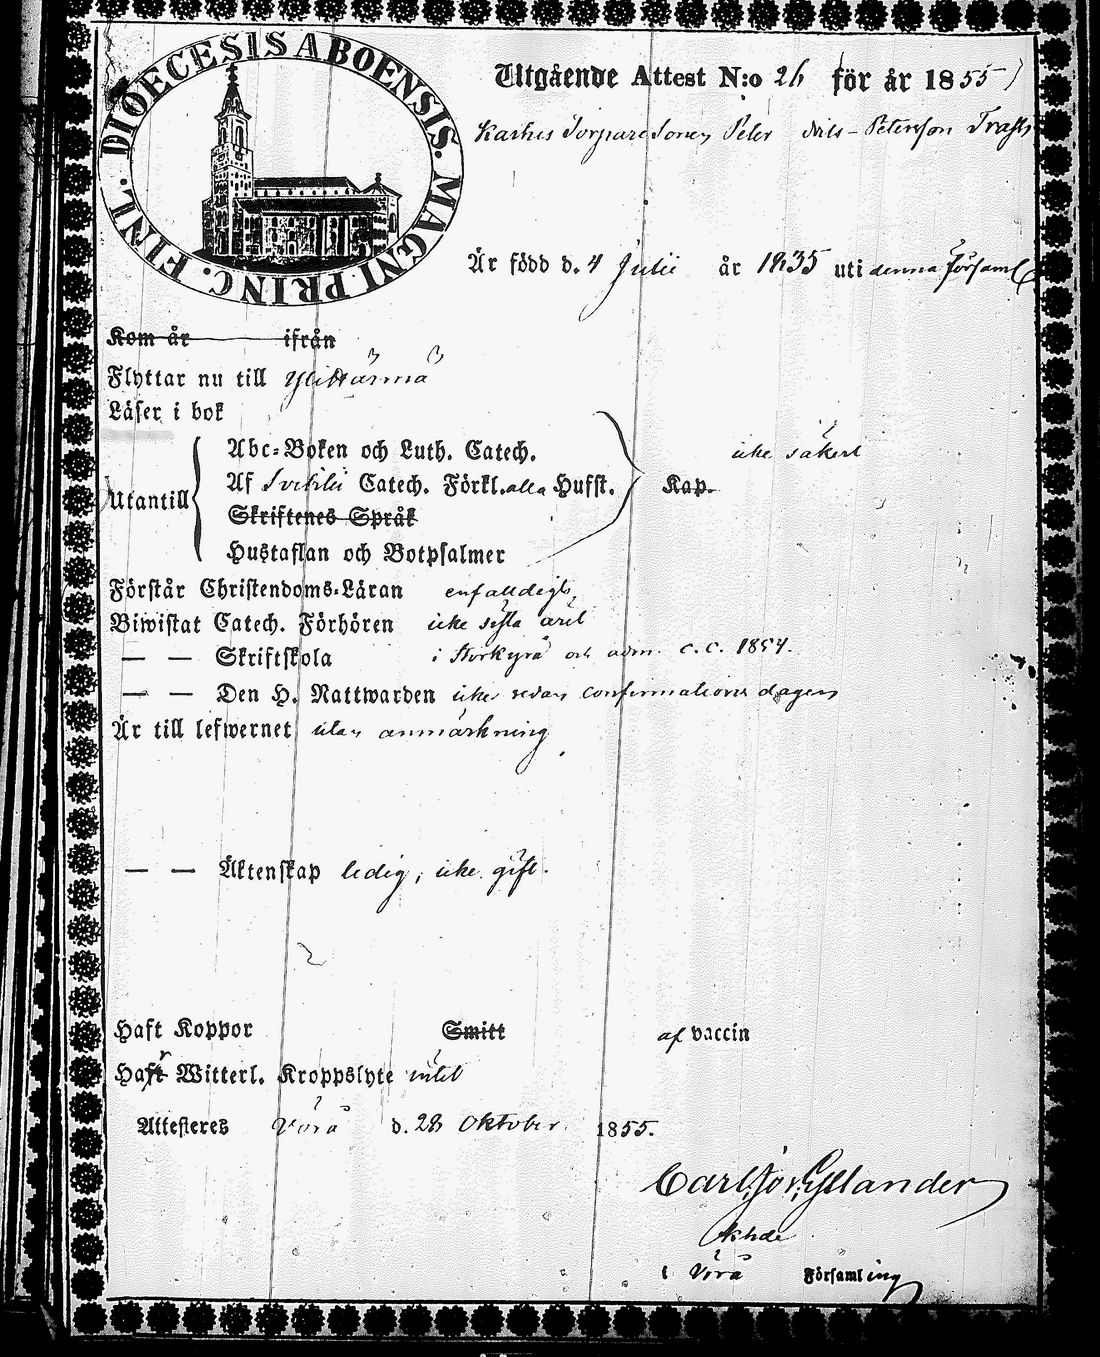 DIOECESIS ABOENSIS. MAGNI PRINC. FINL.
Utgående Attest N:o 26 för år 1855
Torpare Sonen Peter Nils-Peterson
Är född d. 4 Julii år 1835 uti denna Församl
Kom år ifrån
Flyttar nu till Ylihärmä
Läser i bok
Utantill
Abc-Boken och Luth. Catech. icke säkert
Af Svebilii Catech. Förkl. alla Husst. Kap.
Skriftenes Språk
Hustaflan och Botpsalmer
Förstår Christendoms-Läran enfaldigt
Biwistat Catech. Förhören icke sista året
— — Skriftskola i Storkyrö och adm. c.c. 1854.
— — Den H. Nattwarden icke sedan confirmations dagen
Är till lefwernet utan anmärkning
— — Äktenskap ledig, icke gift.
Haft Koppor Smitt af vaccin
Haft Witterl. Kroppslyte intet
Attesteres Vörå d. 28 Oktober 1855.
Carl Joh. Gyllander
i Vörå Församling